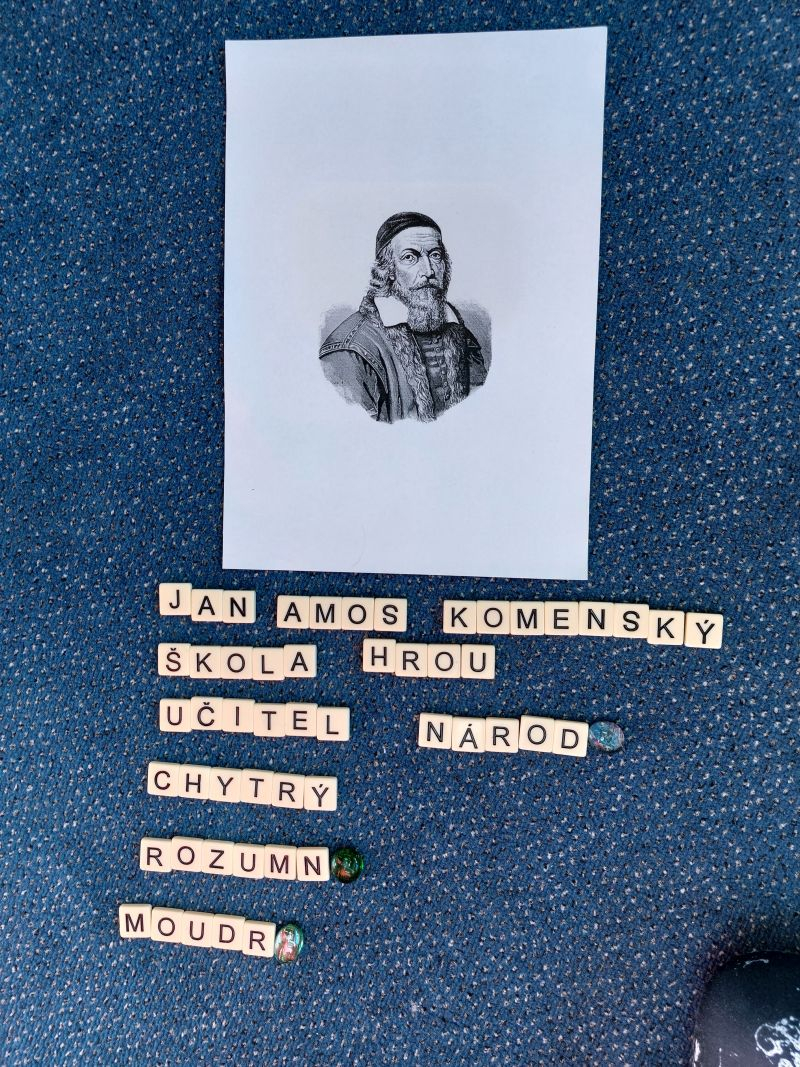 JAN AMOS KOMENSKÝ
ŠKOLA HROU
UČITEL NÁROD
CHYTRÝ
ROZUMN
MOUDR